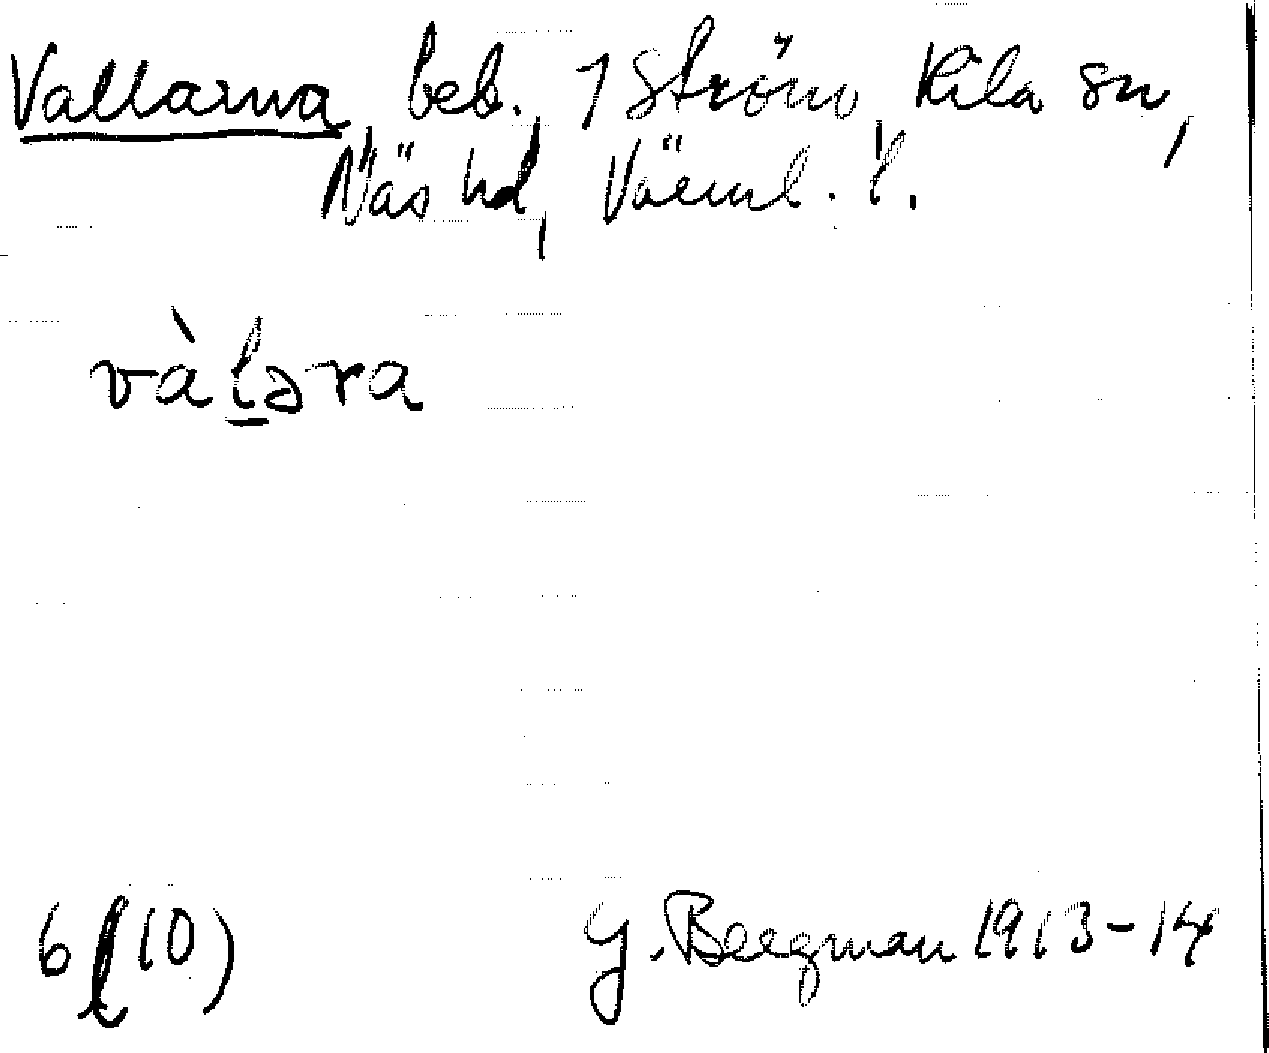 Vallarna, beb. 1 Ström, Kila sn,
Näs hd, Värml. l.
vàl̲əra
6 l(10)
G. Bergman 1913-14